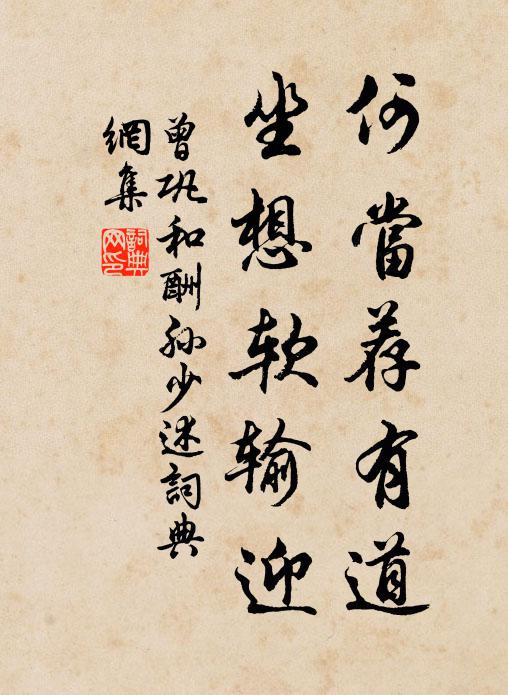 何當荐有道
坐想软输迎
曾巩和酬孙少述詞典
網集
詞典
网印